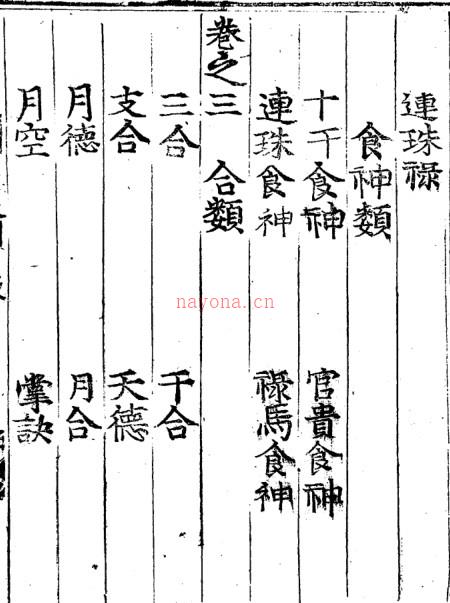 連珠祿
食神類
十干食神 官貴食神
連珠食神 祿馬食神
卷之三 合類
三合 干合
支合 天德
月德 月合
月空 掌訣
nayona.cn